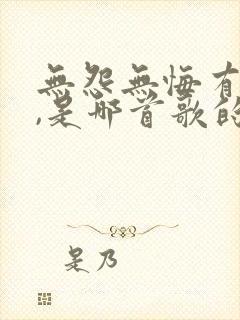 無怨無悔有
,是哪首歌的
是乃